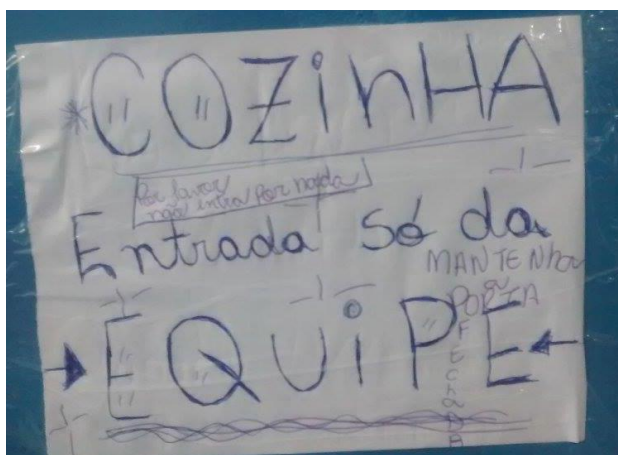 * COZinHA
Por favor
não entra por nada
Entrada só da
MANTENha
a
PORTA
FEchaDA
EQUiPE